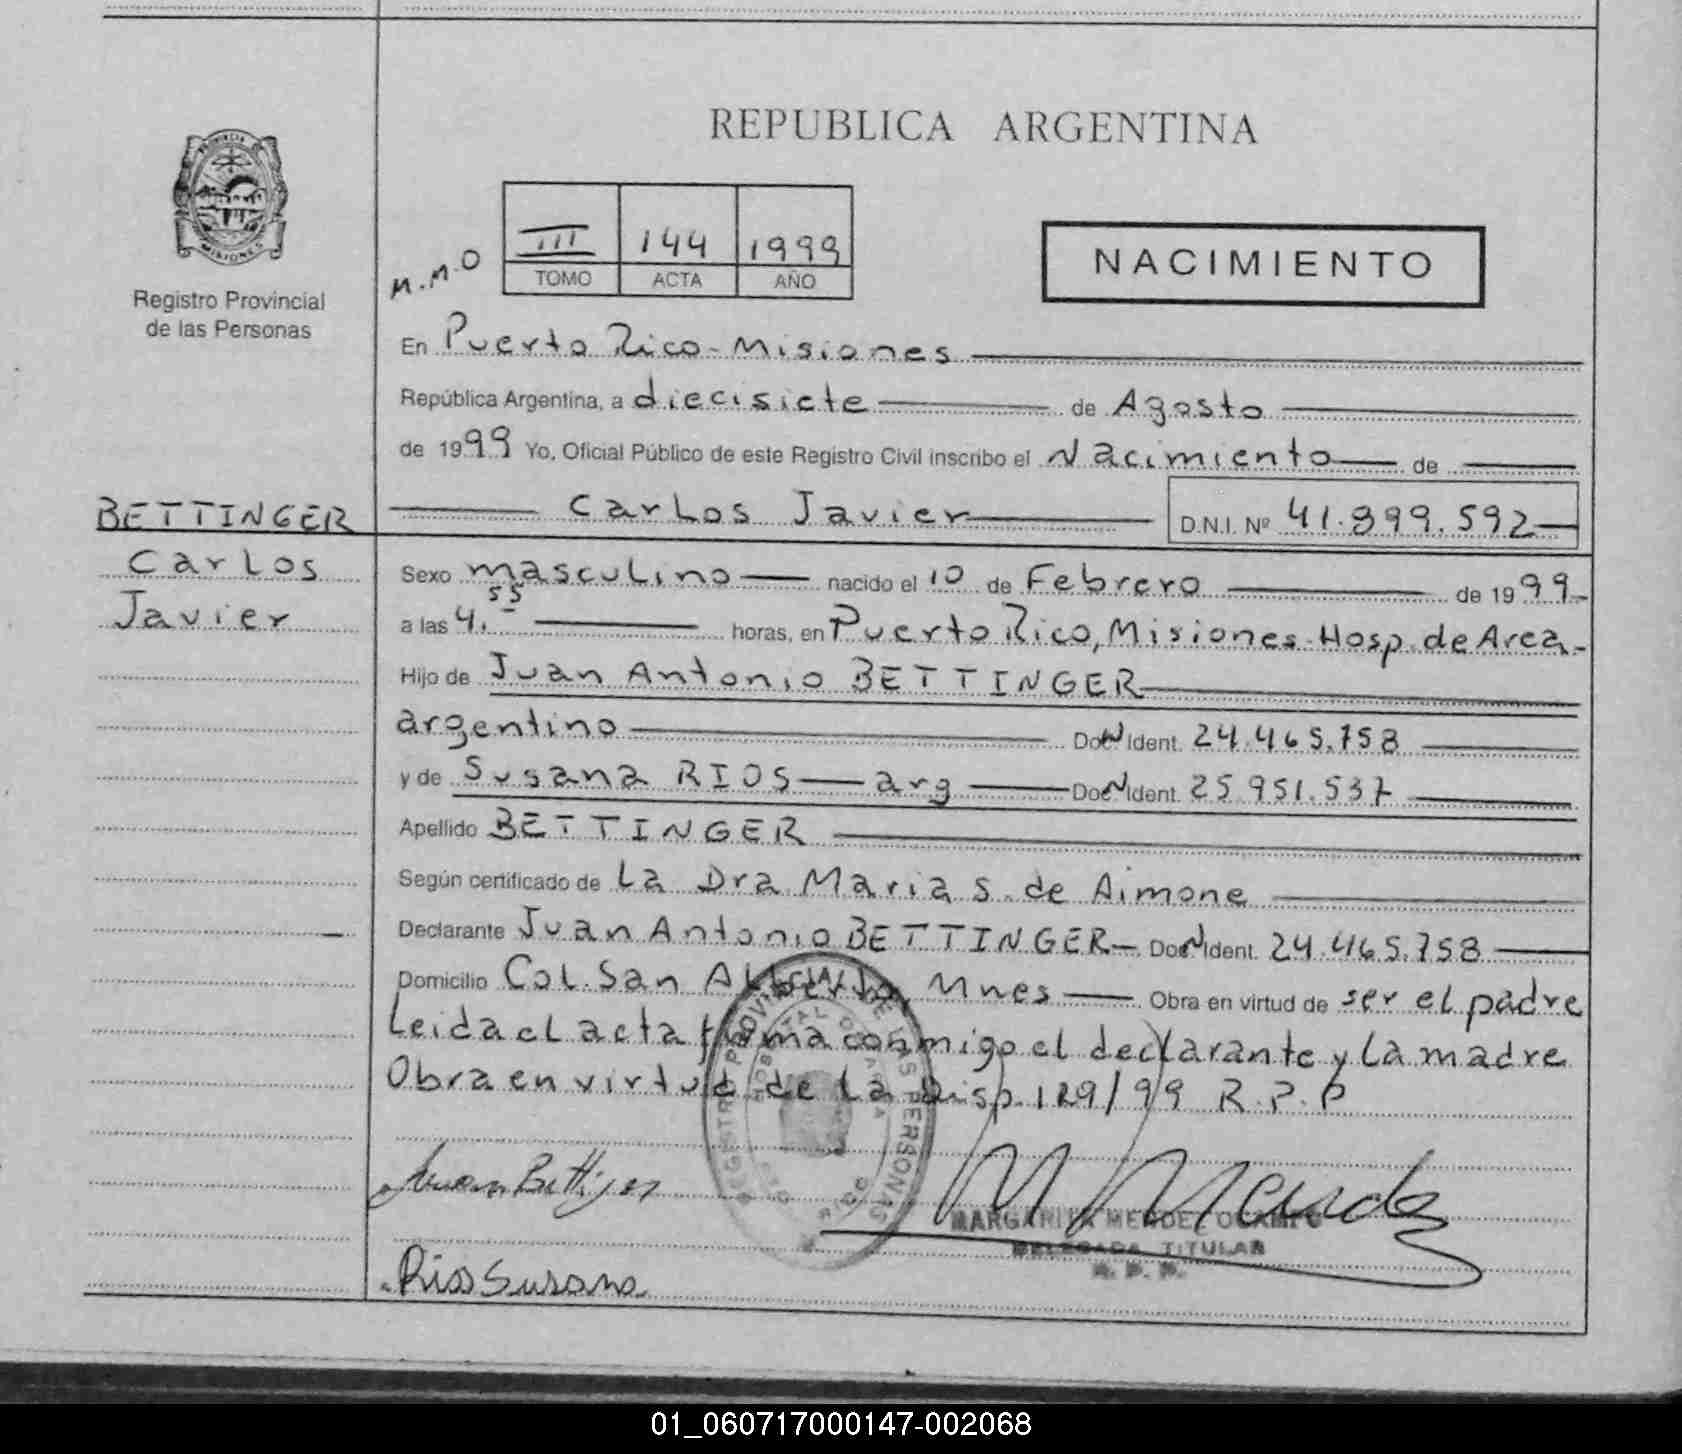 REPUBLICA ARGENTINA
PROVINCIA DE
MISIONES
Registro Provincial
de las Personas
M.M.O
III 144 1999
TOMO ACTA AÑO
NACIMIENTO
En Puerto Rico - Misiones
República Argentina, a diecisiete de Agosto
de 1999 Yo, Oficial Público de este Registro Civil inscribo el Nacimiento de
BETTINGER
Carlos
Javier
Carlos Javier D.N.I. Nº 41.899.592
Sexo masculino nacido el 10 de Febrero de 1999
a las 4.55 horas, en Puerto Rico, Misiones. Hosp. de Area
Hijo de Juan Antonio BETTINGER
argentino Doc N Ident. 24.465.758
y de Susana RIOS arg Doc N Ident. 25.951.537
Apellido BETTINGER
Según certificado de La Dra Maria S. de Aimone
Declarante Juan Antonio BETTINGER Doc N Ident. 24.465.758
Domicilio Col. San Alberto, Mnes Obra en virtud de ser el padre
Leida el acta firma conmigo el declarante y La madre
Obra en virtud de La Disp. 129/99 R.P.P
REGISTRO PROVINCIAL DE LAS PERSONAS
HOSPITAL DE AREA
Juan Bettinger
M Mende
MARGARITA MENDEZ OCAMPO
DELEGADA TITULAR
R. P. P.
Rios Susana
01_060717000147-002068